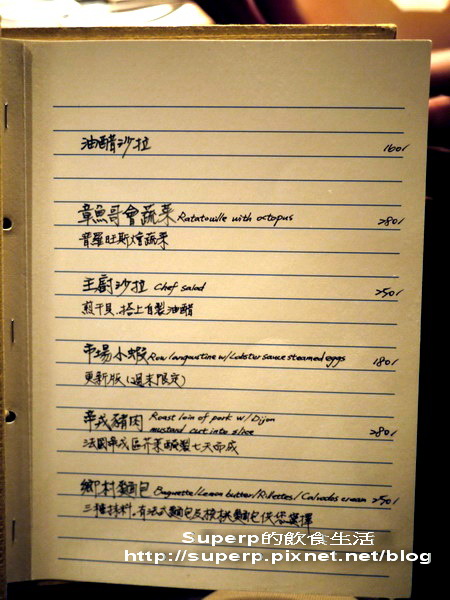 油醋沙拉 160/
章魚哥會蔬菜 Ratatouille with octopus 280/
普羅旺斯燴蔬菜
主廚沙拉 Chef salad 250/
煎干貝、搭上自製油醋
市場小蝦 Raw langoustine w/Lobster sauce steamed eggs 180/
更新版(週末限定)
第戎豬肉 Roast loin of pork w/ Dijon
mustard cut into slice 280/
法國第戎區芥茉醃製七天而成
鄉村麵包 Baguette/Lemon butter/Rillettes/Calvados cream 250/
三種抹料、有法式麵包及核桃麵包供您選擇
Superp的飲食生活
http://superp.pixnet.net/blog